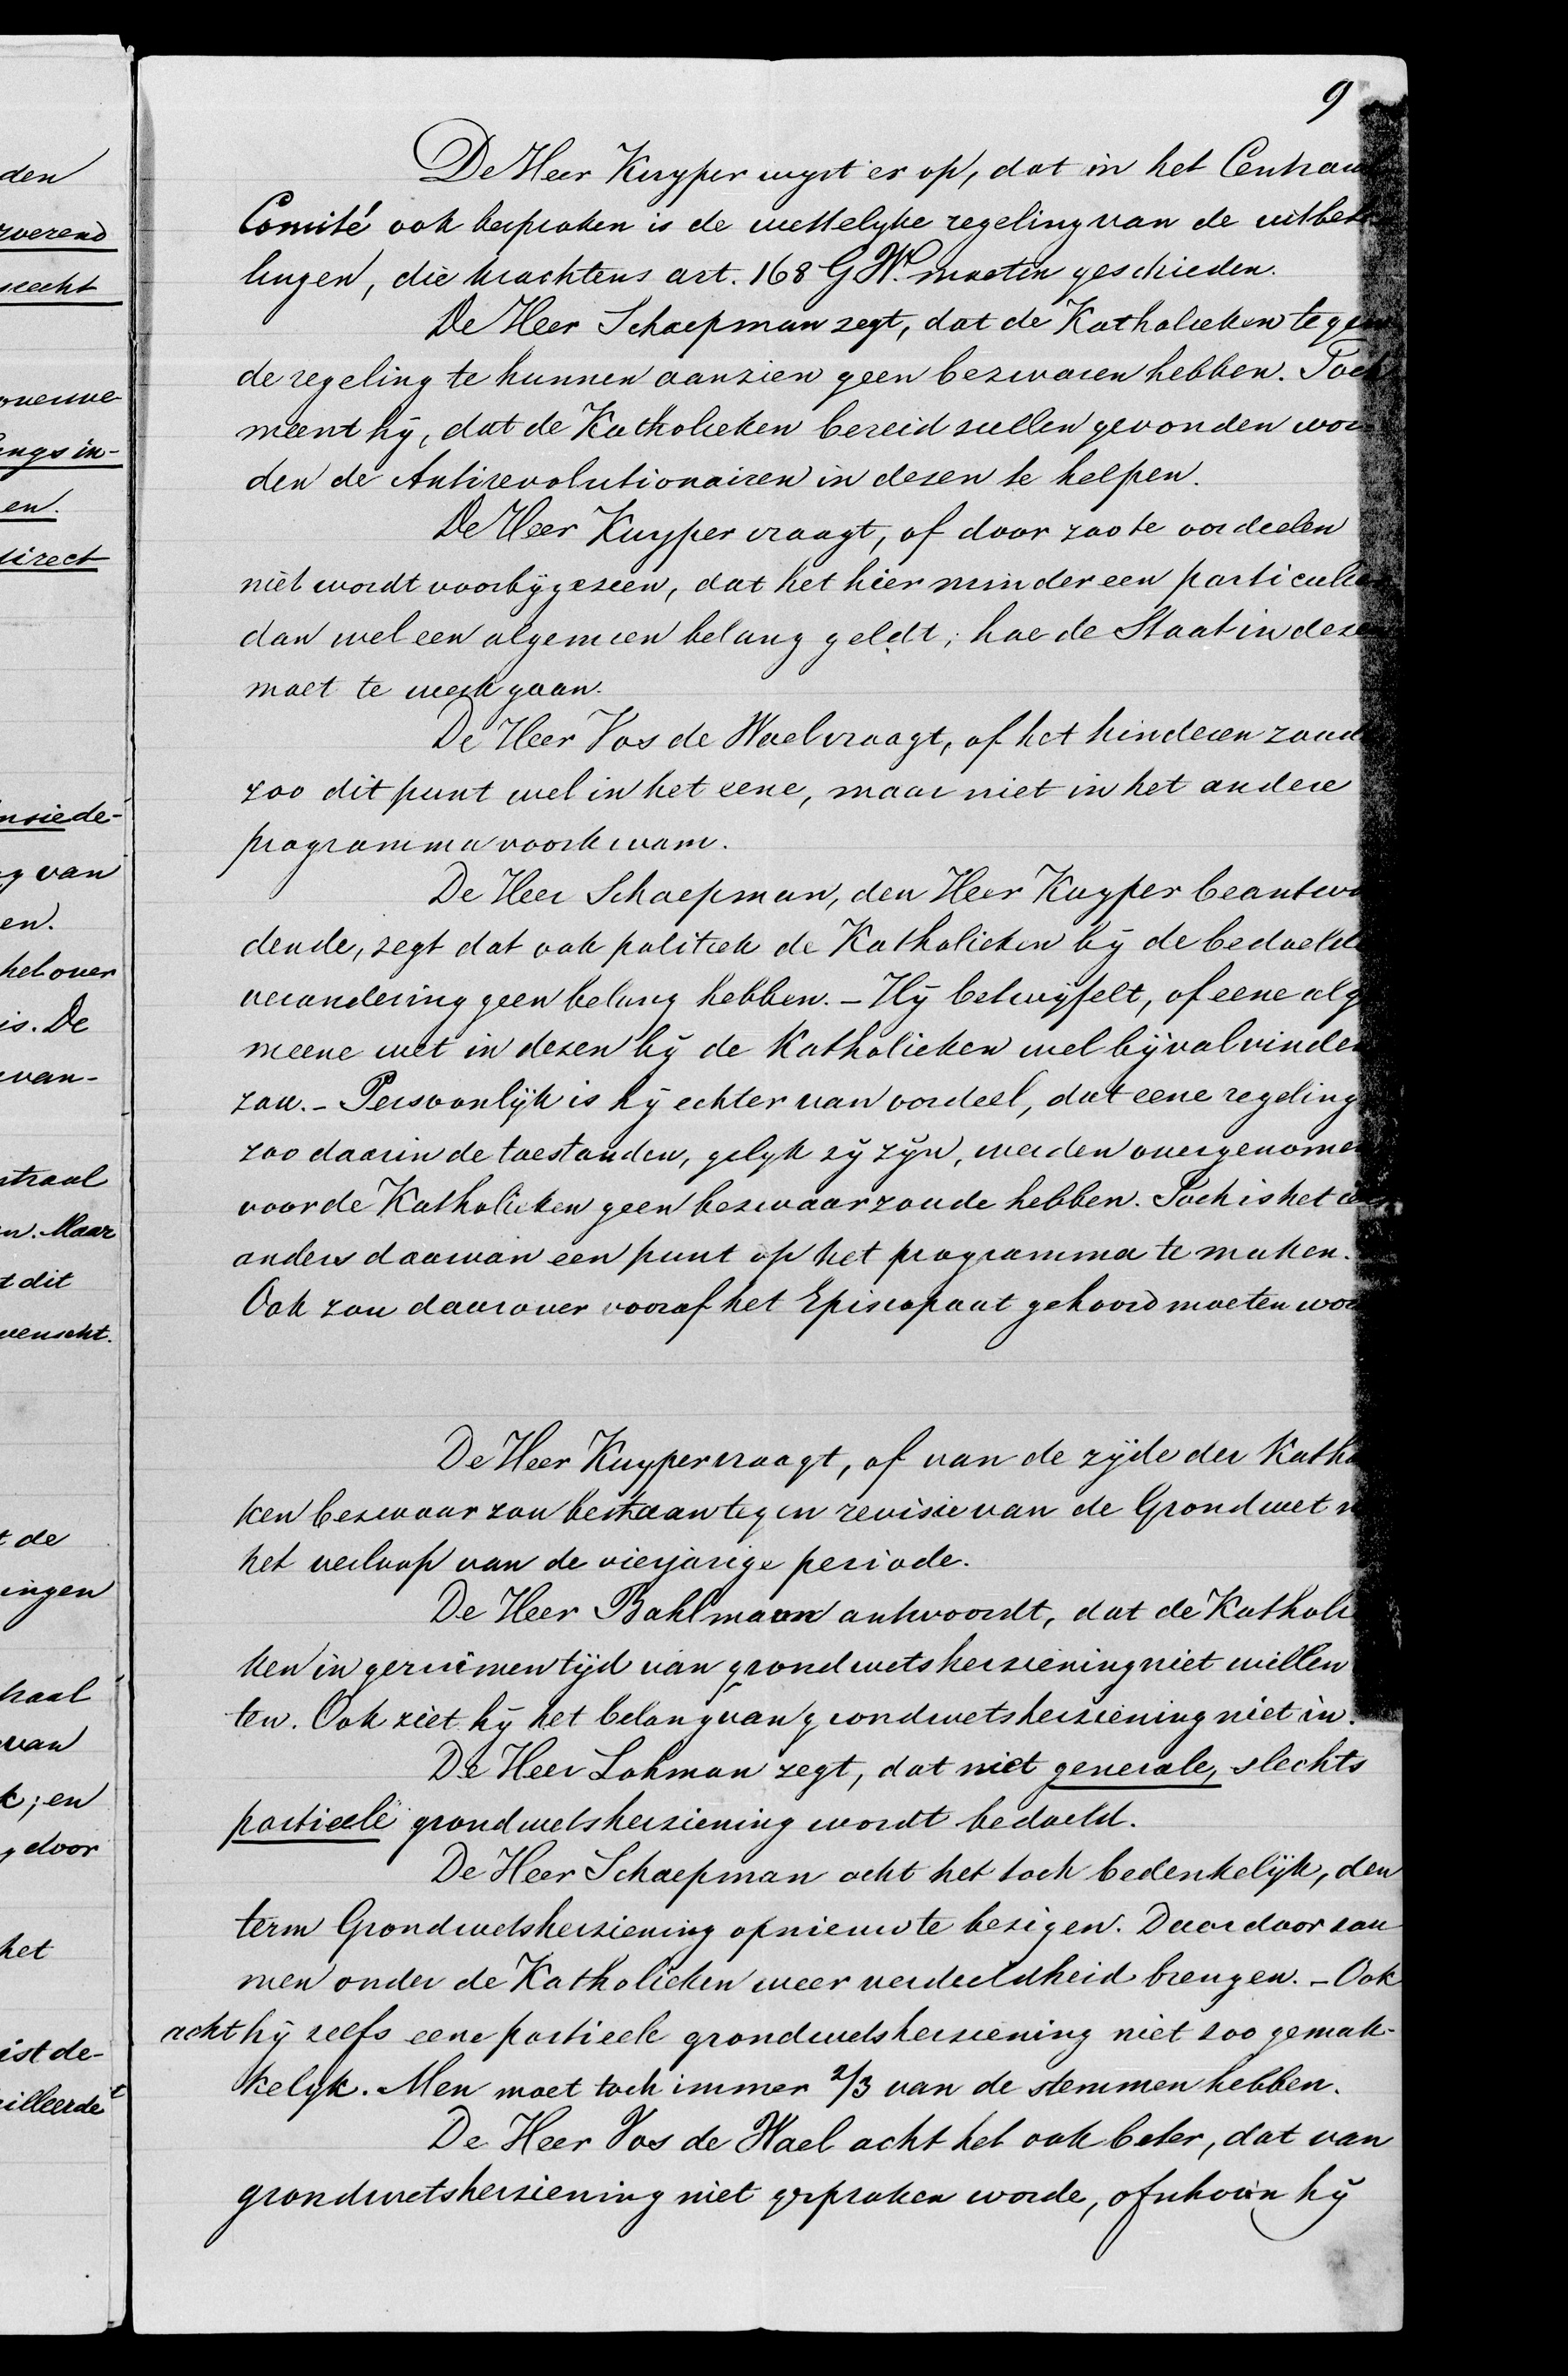 9
De Heer Kuyper wyst er op, dat in het Centraal
Comité ook besproken is de wettelyke regeling van de uitbeta
lingen, die krachtens art. 168 G.W. moeten geschieden.
De Heer Schaepman zegt, dat de Katholieken tegen
de regeling te kunnen aanzien geen bezwaren hebben. Toch
meent hÿ, dat de Katholieken bereid zullen gevonden wor
den de Antirevolutionairen in dezen te helpen.
De Heer Kuyper vraagt, of door zoo te oordeelen
niet wordt voorbÿgezien, dat het hier minder een particulier
dan wel een algemeen belang geldt; hoe de Staat in dezen
moet te werk gaan.
De Heer Vos de Wael vraagt, of het hinderen zoude
zoo dit punt wel in het eene, maar niet in het andere
programma voorkwam.
De Heer Schaepman, den Heer Kuyper beantwo
dende, zegt dat ook politiek de Katholieken bÿ de bedoelde
verandering geen belang hebben. – Hÿ betwÿfelt, of eene alge
meene wet in dezen bÿ de Katholieken wel bÿval vinden
zou. – Persoonlÿk is hÿ echter van oordeel, dat eene regeling
zoo daarin de toestanden, gelyk zÿ zÿn, werden overgenomen
voor de Katholieken geen bezwaar zoude hebben. Toch is het
anders daarvan een punt op het programma te maken.
Ook zou daarover vooraf het Episcopaat gehoord moeten wor
De Heer Kuyper vraagt, of van de zÿde der Katho
ken bezwaar zou bestaan tegen revisie van de Grondwet
het verloop van de vierjarige periode.
De Heer Bahlmann antwoordt, dat de Katholie
ken in geruimen tÿd van grondwetsherziening niet willen
ten. Ook ziet hÿ het belang van grondwetsherziening niet in.
De Heer Lohman zegt, dat niet generale, slechts
partieele grondwetsherziening wordt bedoeld.
De Heer Schaepman acht het toch bedenkelÿk, den
term Grondwetsherziening opnieuw te bezigen. Daardoor zou
men onder de Katholieken weer verdeeldheid brengen. – Ook
acht hÿ zelfs eene partieele grondwetsherziening niet zoo gemak-
kelyk. Men moet toch immer 2/3 van de stemmen hebben.
De Heer Vos de Wael acht het ook beter, dat van
grondwetsherziening niet gesproken worde, ofschoon hÿ
den
overwe-
ings in-
en.
direct
nsiede-
g van
en.
het over
is. De
wan-
ntraal
n. Maar
t dit
wenscht.
t de
ingen
traal
van
k; en
g door
het
ist de-